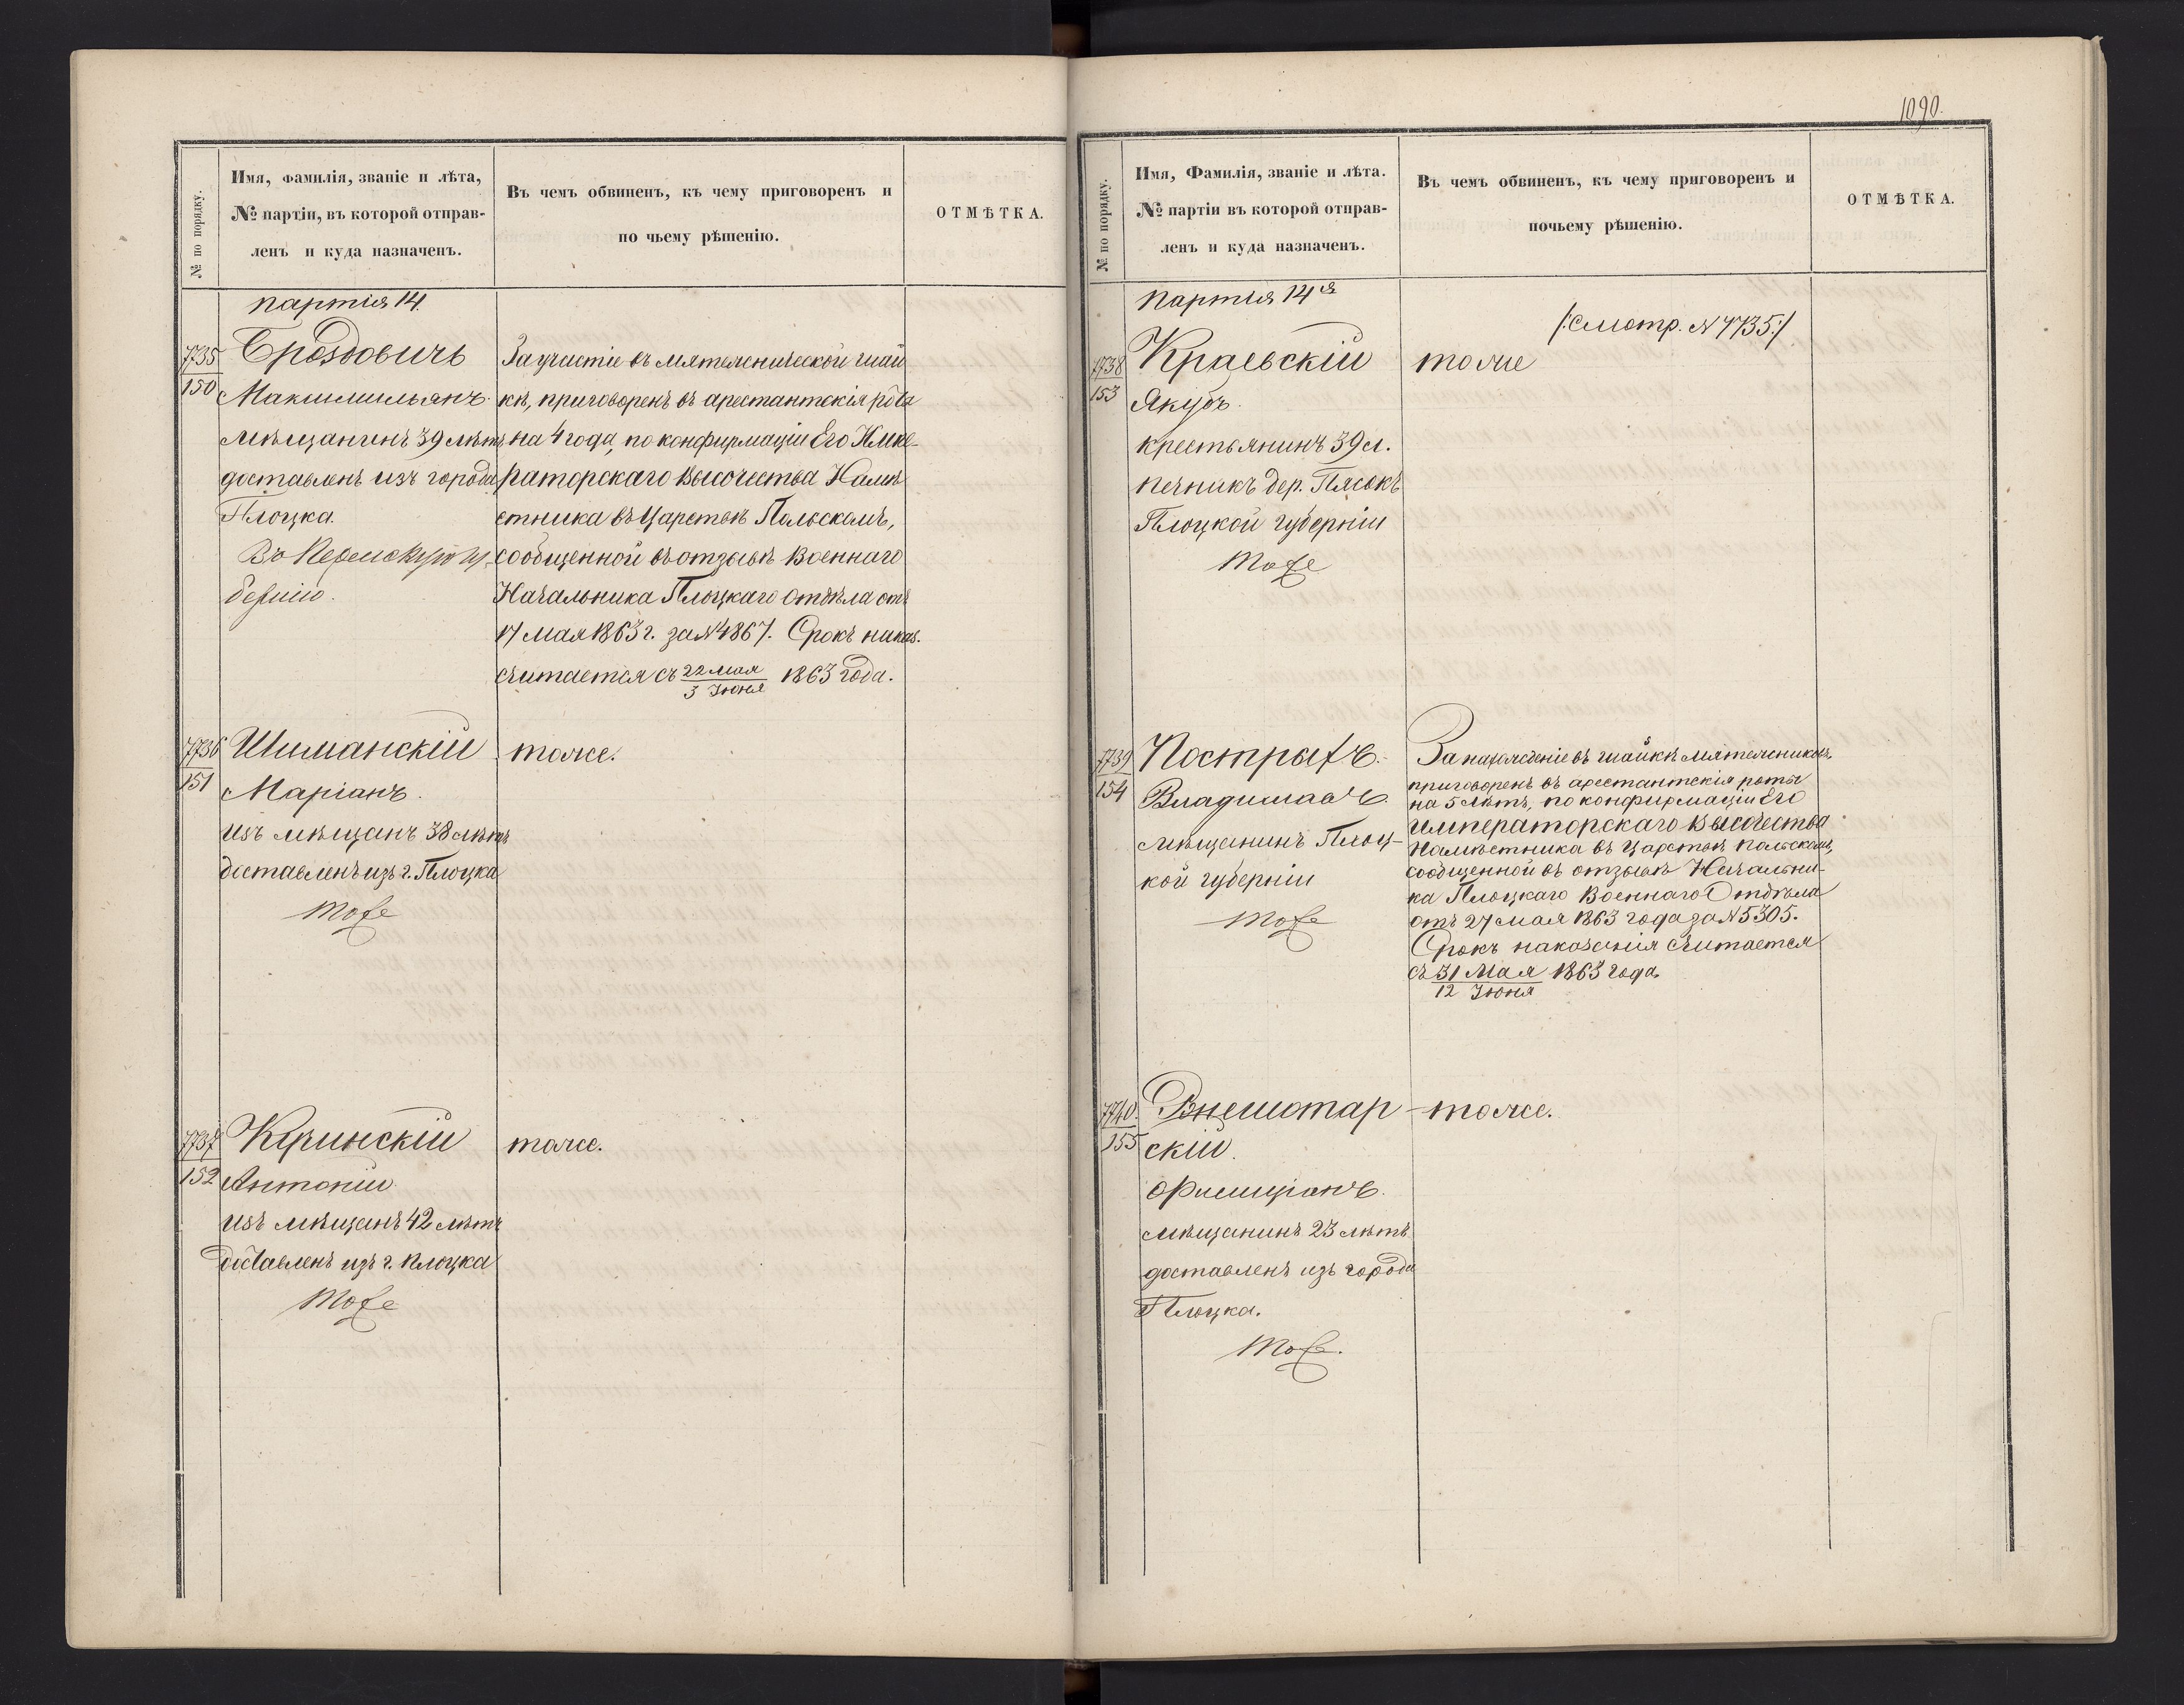 № по порядку.
Имя, Фамилія, званіе и лѣта,
№ партіи, въ которой отправ-
ленъ и куда назначенъ.
Въ чемъ обвиненъ, къ чему приговоренъ и
по чьему рѣшенію.
ОТМѢТКА.
партія 14.
7735
150
Броздовичъ
Максимильянъ
мѣщанинъ 39 лѣтъ
доставленъ изъ города
Плоцка.
Въ Пермскую гу-
бернію.
За участіе въ мятежнической шай
кѣ, приговоренъ въ арестантскія роты
на 4 года, по конфирмаціи Его Импе-
раторскаго Высочества Намѣ
стника въ Царствѣ Польскомъ,
сообщенной въ отзывѣ Военнаго
Начальника Плоцкаго Отдѣла отъ
17 мая 1863 г. за № 4867. Срокъ наказ.
считается съ 22 мая / 3 Іюня 1863 года.
7736
151
Шиманскій
Маріанъ.
изъ мѣщанъ 38 лѣтъ
доставленъ изъ г. Плоцка
тоже
тоже.
7737
152
Антоній
изъ мѣщанъ 42 лѣтъ
доставленъ изъ г. Плоцка
тоже
тоже.
1090.
№ по порядку.
Имя, Фамилія, званіе и лѣта.
№ партіи въ которой отправ-
ленъ и куда назначенъ.
Въ чемъ обвиненъ, къ чему приговоренъ и
почьему рѣшенію.
ОТМѢТКА.
партія 14я
/:Смотр. № 7735:/
7738
153
Краевскій
Якубъ.
крестьянинъ 39 л.
печникъ дер. Пясокъ
Плоцкой губерніи
тоже
тоже
7739
154
Пострыхъ.
Владиславъ.
мѣщанинъ Плоц-
кой губерніи
тоже
За нахожденіе въ шайкѣ мятежниковъ,
приговоренъ въ арестантскія роты
на 5 лѣтъ, по конфирмаціи Его
Императорскаго Высочества
Намѣстника въ Царствѣ Польскомъ,
сообщенной въ отзывѣ Начальни-
ка Плоцкаго Военнаго Отдѣла
отъ 27 мая 1863 года за № 5305.
Срокъ наказанія считается
съ 31 Мая / 12 Іюня 1863 года.
7740.
155
скій.
мѣщанинъ 23 лѣтъ
доставленъ изъ города
Плоцка.
тоже.
тоже.